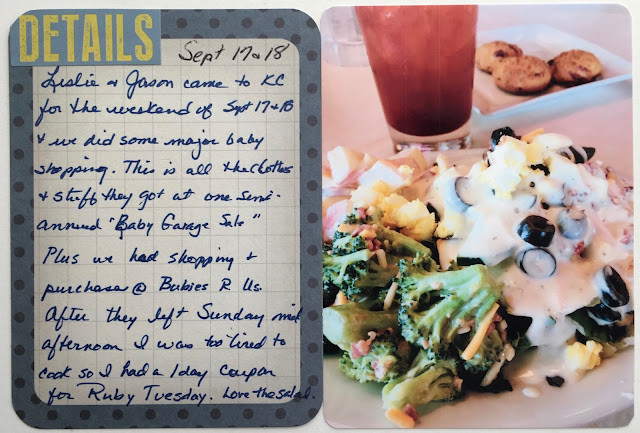 DETAILS
Sept 17 & 18
Leslie & Jason came to KC
for the weekend of Sept 17 & 18
& we did some major baby
shopping. This is all the clothes
& stuff they got at one semi-
annual "Baby Garage Sale"
Plus we had shopping &
purchase @ Babies R Us.
After they left Sunday mid
afternoon I was too tired to
cook so I had a 1 day coupon
for Ruby Tuesday. Love the salad.